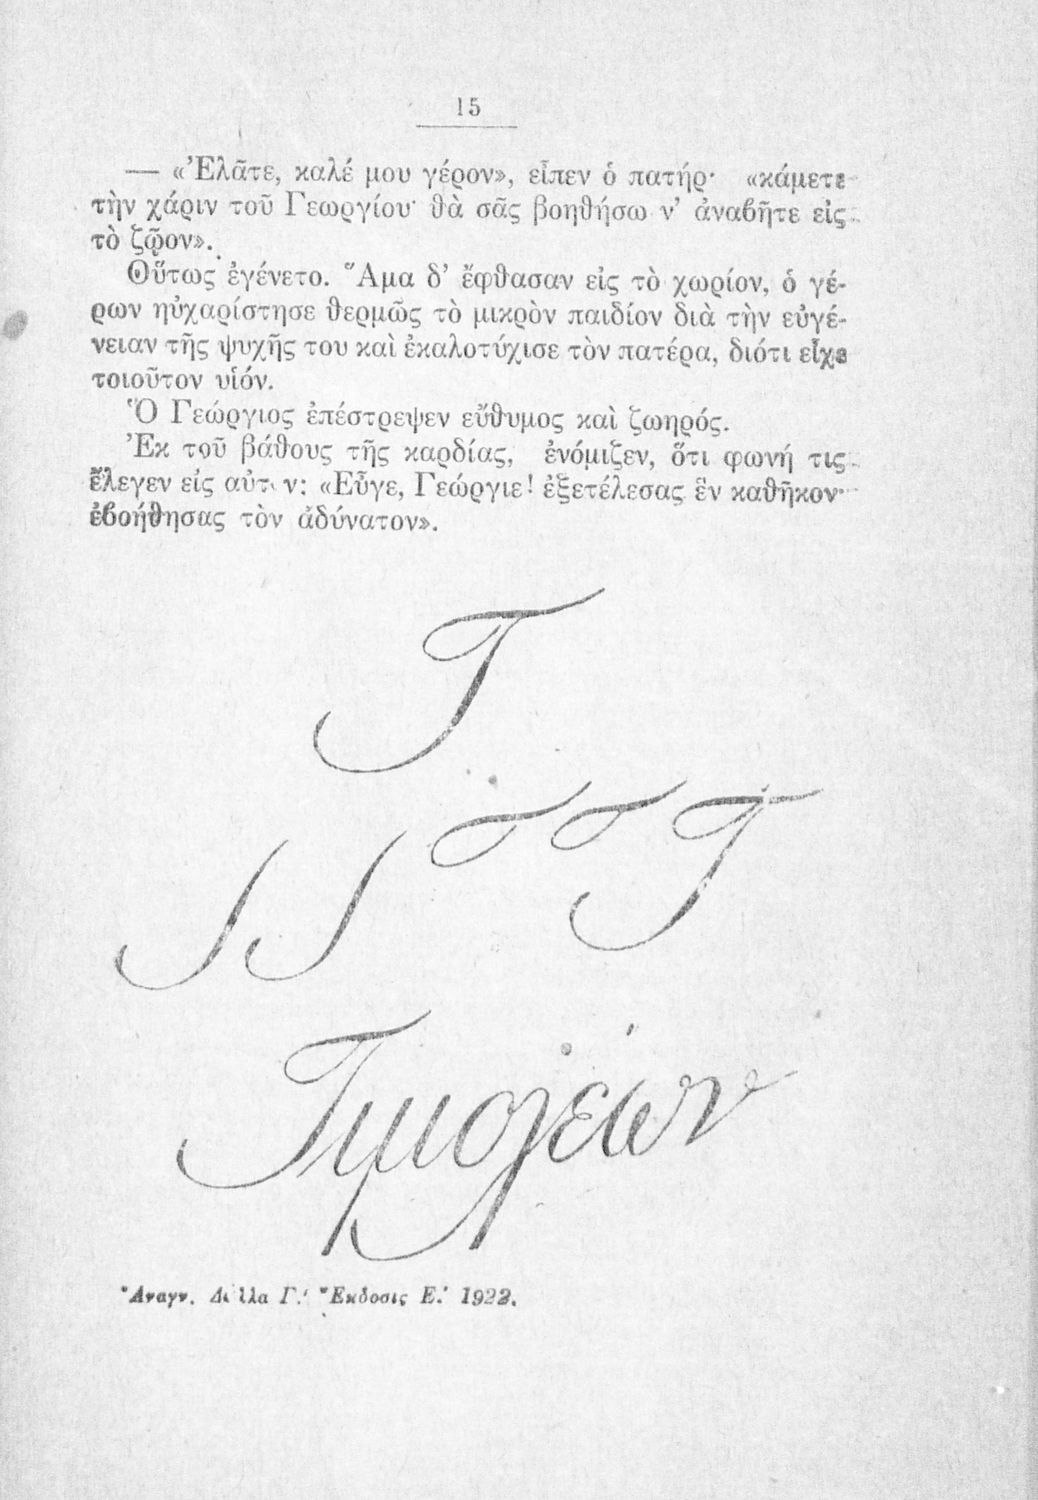 15
— «Ἐλᾶτε, καλέ μου γέρον», εἶπεν ὁ πατήρ· «κάμετε
τὴν χάριν τοῦ Γεωργίου· θὰ σᾶς βοηθήσω ν' ἀναβῆτε εἰς
τὸ ζῷον».
Οὕτως ἐγένετο. Ἅμα δ' ἔφθασαν εἰς τὸ χωρίον, ὁ γέ-
ρων ηὐχαρίστησε θερμῶς τὸ μικρὸν παιδίον διὰ τὴν εὐγέ-
νειαν τῆς ψυχῆς του καὶ ἐκαλοτύχισε τὸν πατέρα, διότι εἶχε
τοιοῦτον υἱόν.
Ὁ Γεώργιος ἐπέστρεψεν εὔθυμος καὶ ζωηρός.
Ἐκ τοῦ βάθους τῆς καρδίας, ἐνόμιζεν, ὅτι φωνή τις
ἔλεγεν εἰς αὐτὸν: «Εὖγε, Γεώργιε! ἐξετέλεσας ἓν καθῆκον·
ἐβοήθησας τὸν ἀδύνατον».
Τ
Τ
Τιμολέων
Ἀναγν. Γ.' Ἔκδοσις Ε.' 1922.